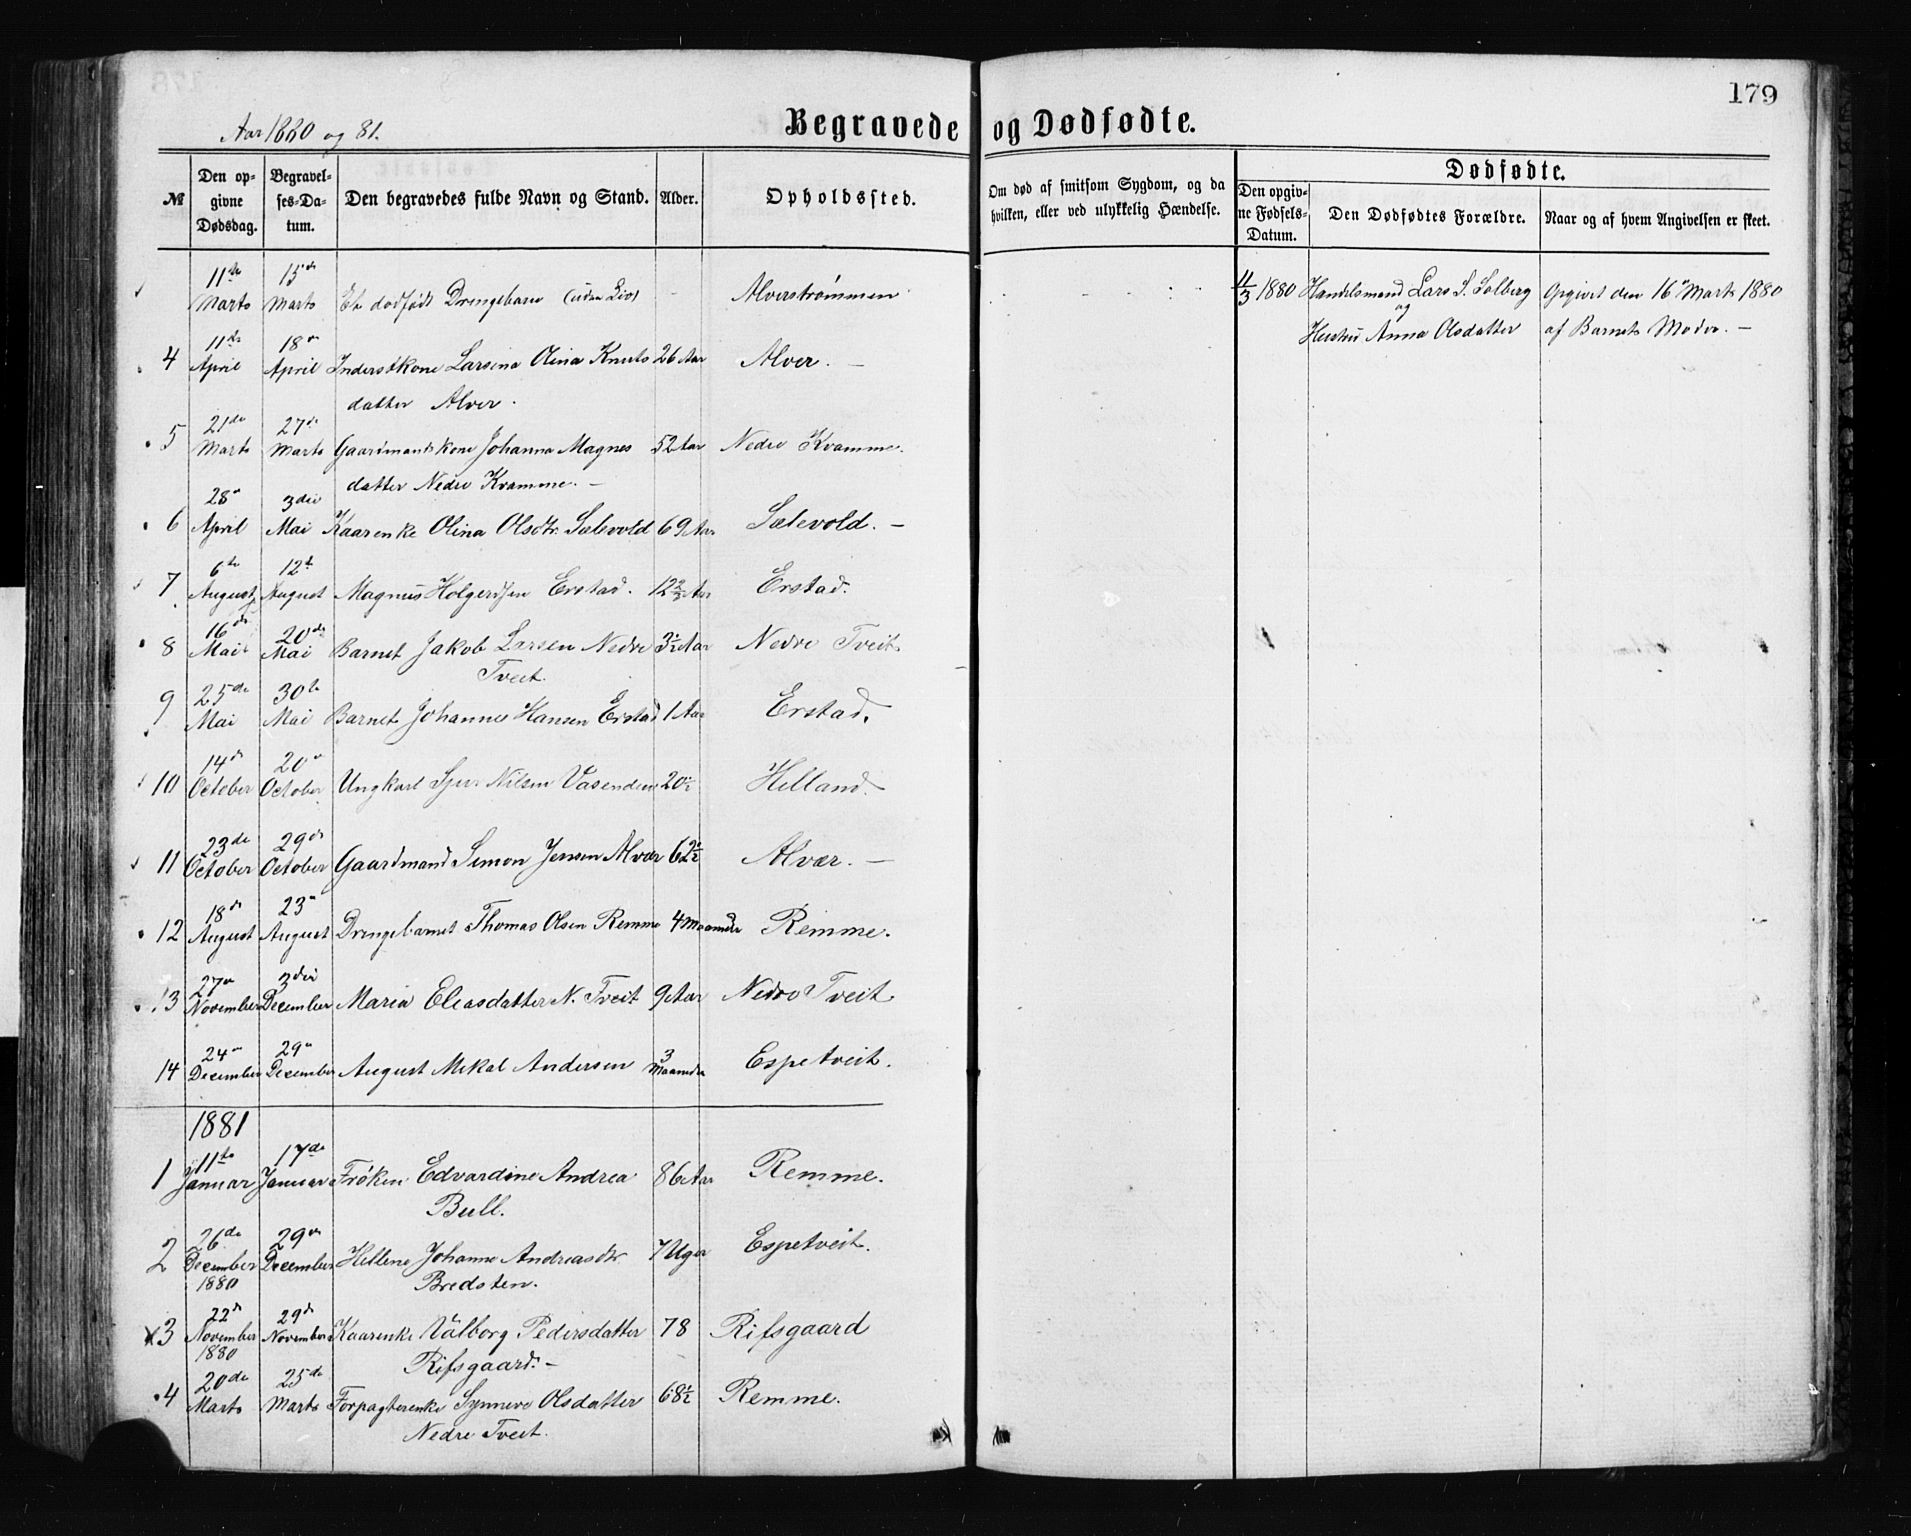 179
Aar 1880 og 81.
Begravede og Dødfødte.
№
Den opgivne Dødsdag.
Begravelses-Datum.
Den begravedes fulde Navn og Stand.
Alder.
Opholdssted.
Om død af smitsom Sygdom, og da hvilken, eller ved ulykkelig Hændelse.
Dødfødte.
Den opgivne Fødsels-Datum.
Den Dødfødtes Forældre.
Naar og af hvem Angivelsen er skeet.
11te Marts 15de Marts Et dødfødt Drengebarn (uden Liv) Alverstrømmen 11/3 1880 Handelsmand Lars S. Solberg Opgivet den 16de Marts 1880
og
Hustru Anna Olsdatter af Barnets Moder. —
4 11te April 18de April Inderstkone Larsina Olina Knuts 26 Aar Alver. —
datter Alver.
5 21de Marts 27de Marts Gaardmandskone Johanna Magnes 52 Aar Nedre Kvamme.
datter Nedre Kvamme. —
6 28de April 3die Mai Kaarenke Olina Olsdtr. Sælevold 69 Aar Sælevold. —
7 6te August 12te August Magnus Holgersen Erstad. 12 2/3 Aar Erstad.
8 16de Mai 20de Mai Barnet Jakob Larsen Nedre 3½ Aar Nedre Tveit
Tveit.
9 25de Mai 30te Mai Barnet Johannes Hansen Erstad 1 Aar Erstad.
10 14de October 20de October Ungkarl Sjur Nilsen Vasenden 20½ Helland.
11 23de October 29de October Gaardmand Simon Jensen Alvær 62½ Alvær. —
12 18de August 23de August Drengebarnet Thomas Olsen Remme 4 Maaneder Remme.
13 27de November 3die December Maria Eliasdatter N. Tveit 9 Aar Nedre Tveit
14 24de December 29de December August Mikal Andersen 3 Maaneder Espetveit.
1881
1 11te Januar 17de Januar Frøken Edvardine Andrea 86 Aar Remme.
Bull.
2 26de December 1880 29de December Hellene Johanne Andreasdtr 7 Uger Espetveit.
Bredsten.
x3 22de November 1880 29de November Kaarenke Valborg Pedersdatter 78 Rifsgaard
Rifsgaard. —
4 20de Marts 25de Marts Forpagterenke Synneve Olsdatter 68½ Remme.
Nedre Tveit.